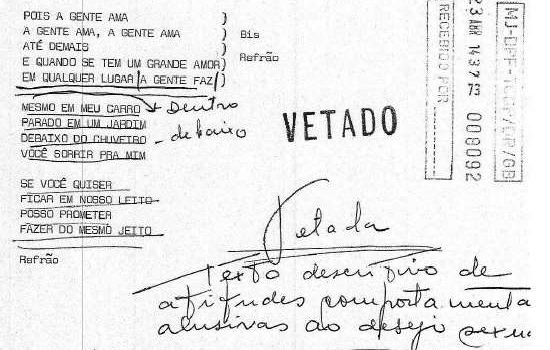 POIS A GENTE AMA )
A GENTE AMA, A GENTE AMA ) Bis
ATÉ DEMAIS )
E QUANDO SE TEM UM GRANDE AMOR) Refrão
EM QUALQUER LUGAR A GENTE FAZ )
MESMO EM MEU CARRO Dentro
PARADO EM UM JARDIM
DEBAIXO DO CHUVEIRO - debaixo
VOCÊ SORRIR PRA MIM
SE VOCÊ QUISER
FICAR EM NOSSO LEITO
POSSO PROMETER
FAZER DO MESMO JEITO
Refrão
VETADO
RECEBIDO POR
23 ABR 1437 73 008092
MJ-DPF-
Vetada
Texto descritivo de
atitudes comportamenta
alusivas ao desejo sexu